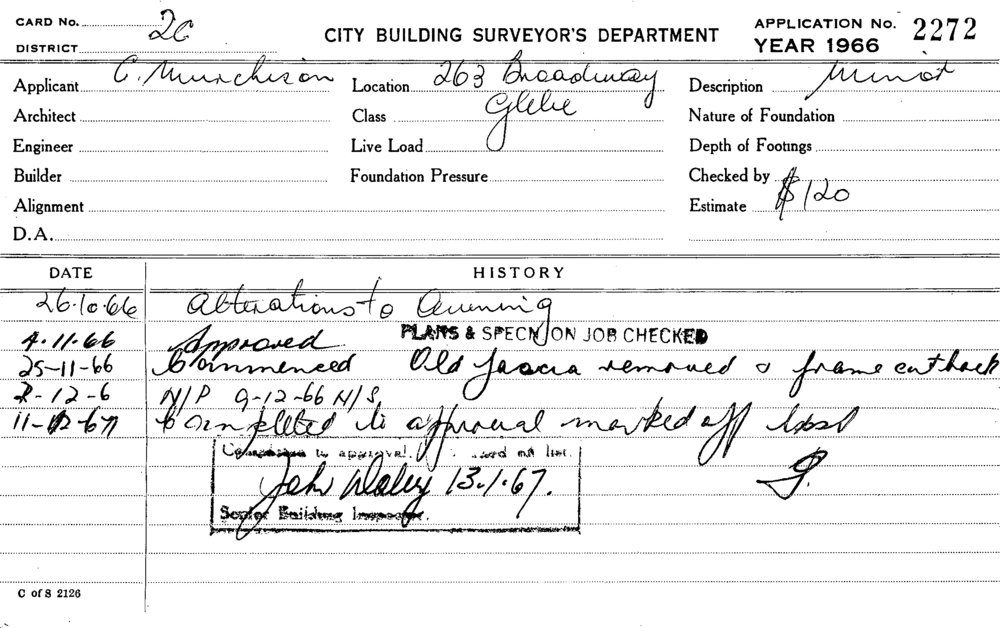 CARD No. 2C
DISTRICT
CITY BUILDING SURVEYOR'S DEPARTMENT
APPLICATION No. 2272
YEAR 1966
Applicant C. Murchison
Location 263 Broadway
Glebe
Description Minor
Architect
Class
Nature of Foundation
Engineer
Live Load
Depth of Footings
Builder
Foundation Pressure
Checked by
Alignment
Estimate $120
D.A.
DATE HISTORY
26.10.66 Alterations to Awning
4.11.66 Approved PLANS & SPECN ON JOB CHECKED
25-11-66 Commenced Old fascia removed & frame cut back
2-12-6 N/P 9-12-66 N/S
Completed to approval marked off
Completion to approval. card off list.
John Daley 13.1.67.
Senior Building Inspector.
C of S 2126